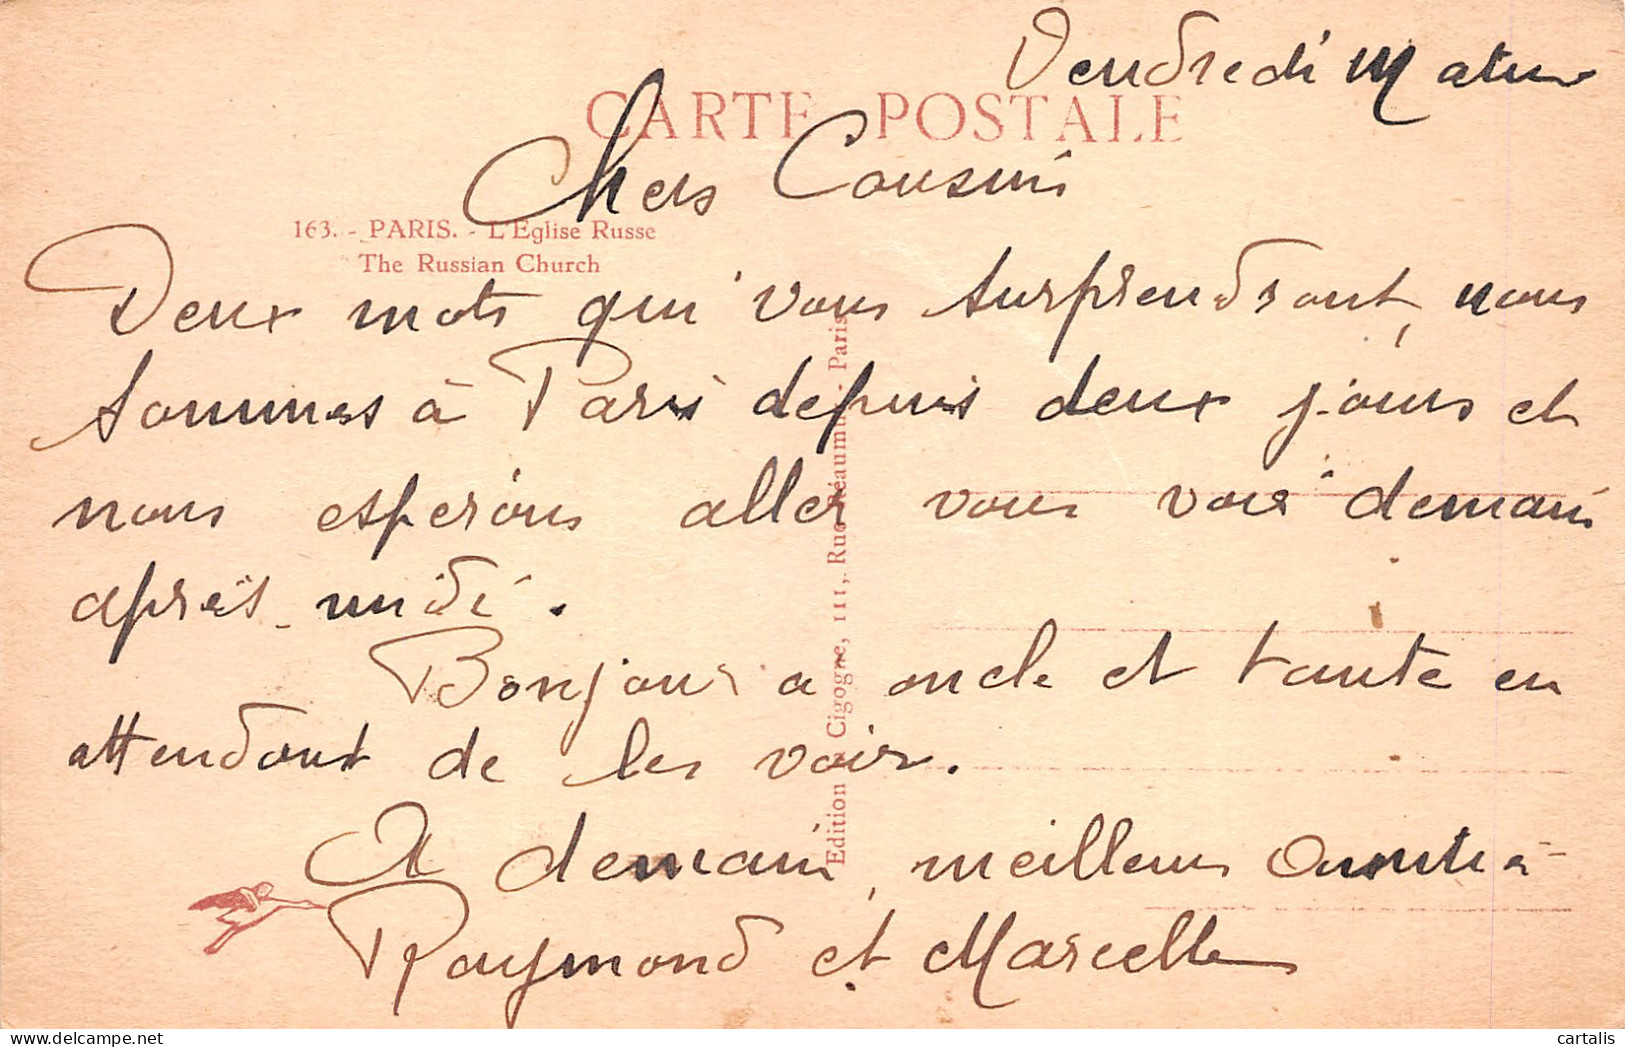 Vendredi Matin
CARTE POSTALE
Chers Cousins
163. - PARIS. - L'Eglise Russe
The Russian Church
Deux mots qui vous surprendront, nous
sommes à Paris depuis deux jours et
nous esperons aller vous voir demain
après-midi.
Bonjour a oncle et tante en
attendant de les voir.
A demain, meilleurs
Raymond et Marcelle
Edition Cigogne, 111, Rue Réaumur - Paris
cartalis